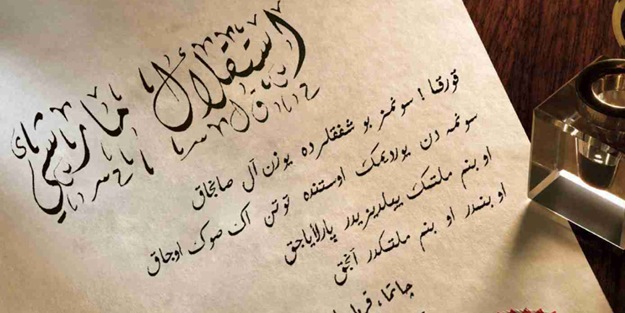 استقلال مارشی
قورقما ! سونمز بو شفقلرده یوزن آل صانجاق
سونمه دن یوردیمك اوستنده توتن اك صوك اوجاق
او بنم ملتمك ییلدیزیدر پارلایاجق
او بنمدر او بنم ملتمكدر آنجق
چاتما، قربا